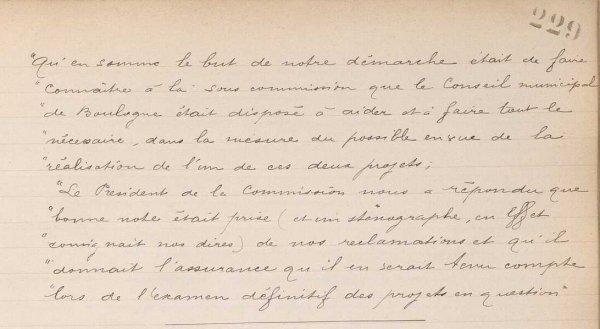 229
"Qu'en somme le but de notre démarche était de faire
"connaître à la sous commission que le Conseil municipal
"de Boulogne était disposé à aider et à faire tout le
"nécessaire, dans la mesure du possible en vue de la
"réalisation de l'un de ces deux projets;
"Le President de la Commission nous a répondu que
"bonne note était prise (et un sténographe, en effet
"consignait nos dires) de nos reclamations et qu'il
"donnait l'assurance qu'il en serait tenu compte
"lors de l'examen définitif des projets en question"